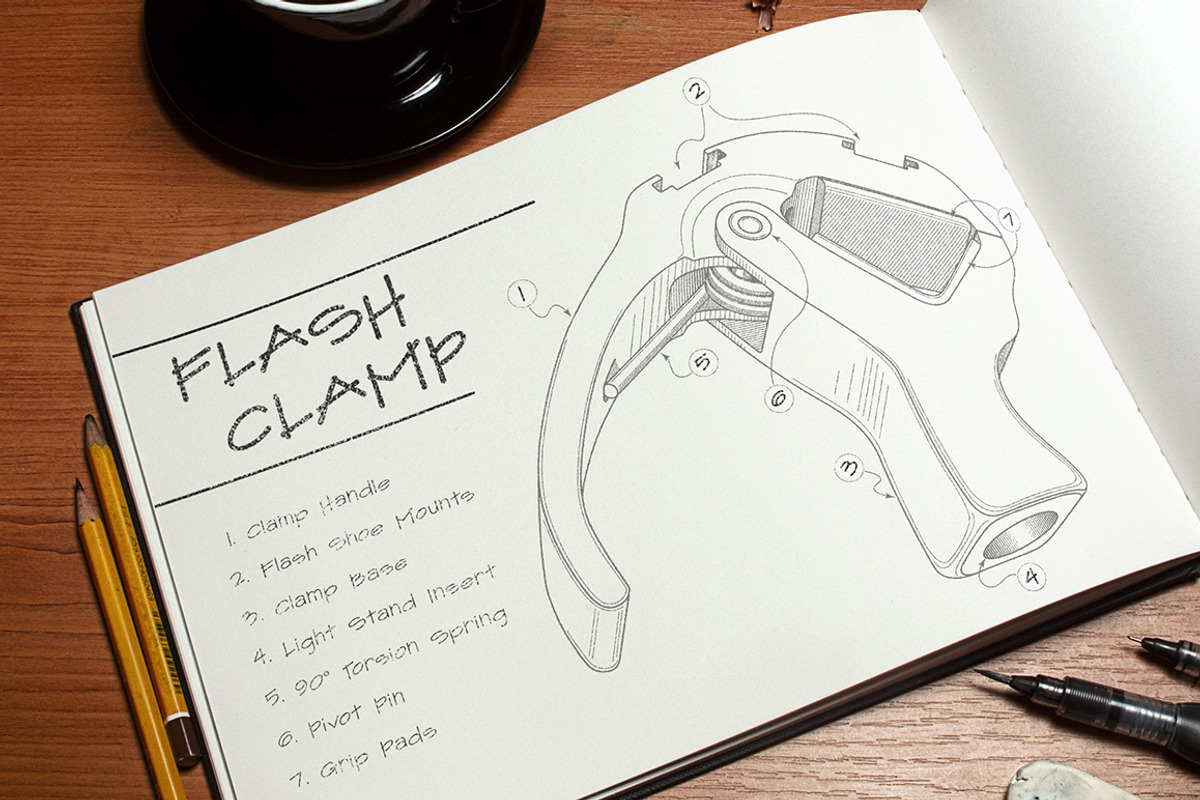 FLASH
CLAMP
1. Clamp Handle
2. Flash Shoe Mounts
3. Clamp Base
4. Light Stand Insert
5. 90° Torsion Spring
6. Pivot Pin
7. Grip Pads
2
7
1
5
6
3
4